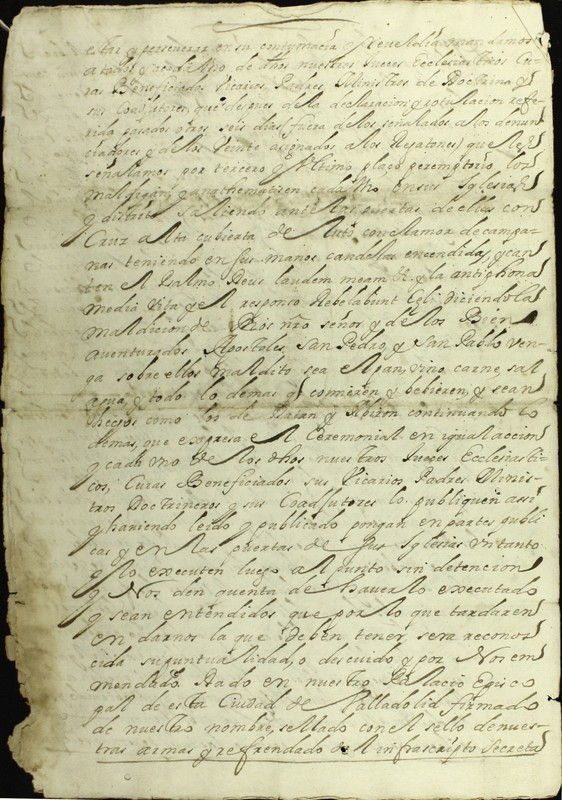 estar y perseverar en su contumacia y reveldia mandamos
a todos y cada uno de dhos nuestros Jueces Ecclesiasticos Cu-
ras Beneficiados Vicarios Padres Ministros de Doctrina y
sus Coadjutores que despues de la declaracion y rotulacion refe-
rida pasados otros seis dias (fuera de los señalados a los denun-
ciadores y de los veinte asignados a los Rejatones) que les
señalamos por tercero y ultimo plaço perentorio los
maldigan y anathematizen cada uno en sus Iglesias
y distritos saliendo ante las puertas de ellas con
Cruz alta cubierta de luto con clamor de campa-
nas teniendo en sus manos candelas encendidas, y can-
ten el Psalmo Deus laudem meam &, y la antiphona
media vita y el responso Rebelabunt Celi diciendo la
maldicion de Dios nro señor y de los Bien
aventurados Apostoles, San Pedro, y San Pablo ven-
ga sobre ellos maldito sea el pan, vino, carne, sal
y todo lo demas q comieren y bebieren, y sean
hechos como los de Datan y Abiron continuando lo
demas, que expresa el Ceremonial en igual accion
y cada vno de los dhos nuestros Jueces Ecclesiasti-
cos, Curas Beneficiados sus Vicarios Padres Minis-
tros Doctrineros y sus Coadjutores lo publiquen assi
y haviendo leido y publicado pongan en partes publi-
cas y en las puertas de sus Iglesias vn tanto
y lo executen luego al punto sin detencion
y Nos den quenta de haverlo executado
y sean entendidos que por lo que tardaren
en darnos la que deben tener, sera reconos-
cida su puntualidad, o descuido y por Nos en-
mendado. Dado en nuestro Palacio Episco-
pal de esta Ciudad de Valladolid firmado
de nuestro nombre, sellado con el sello de nues-
tras armas y refrendado del infrascripto Secreta